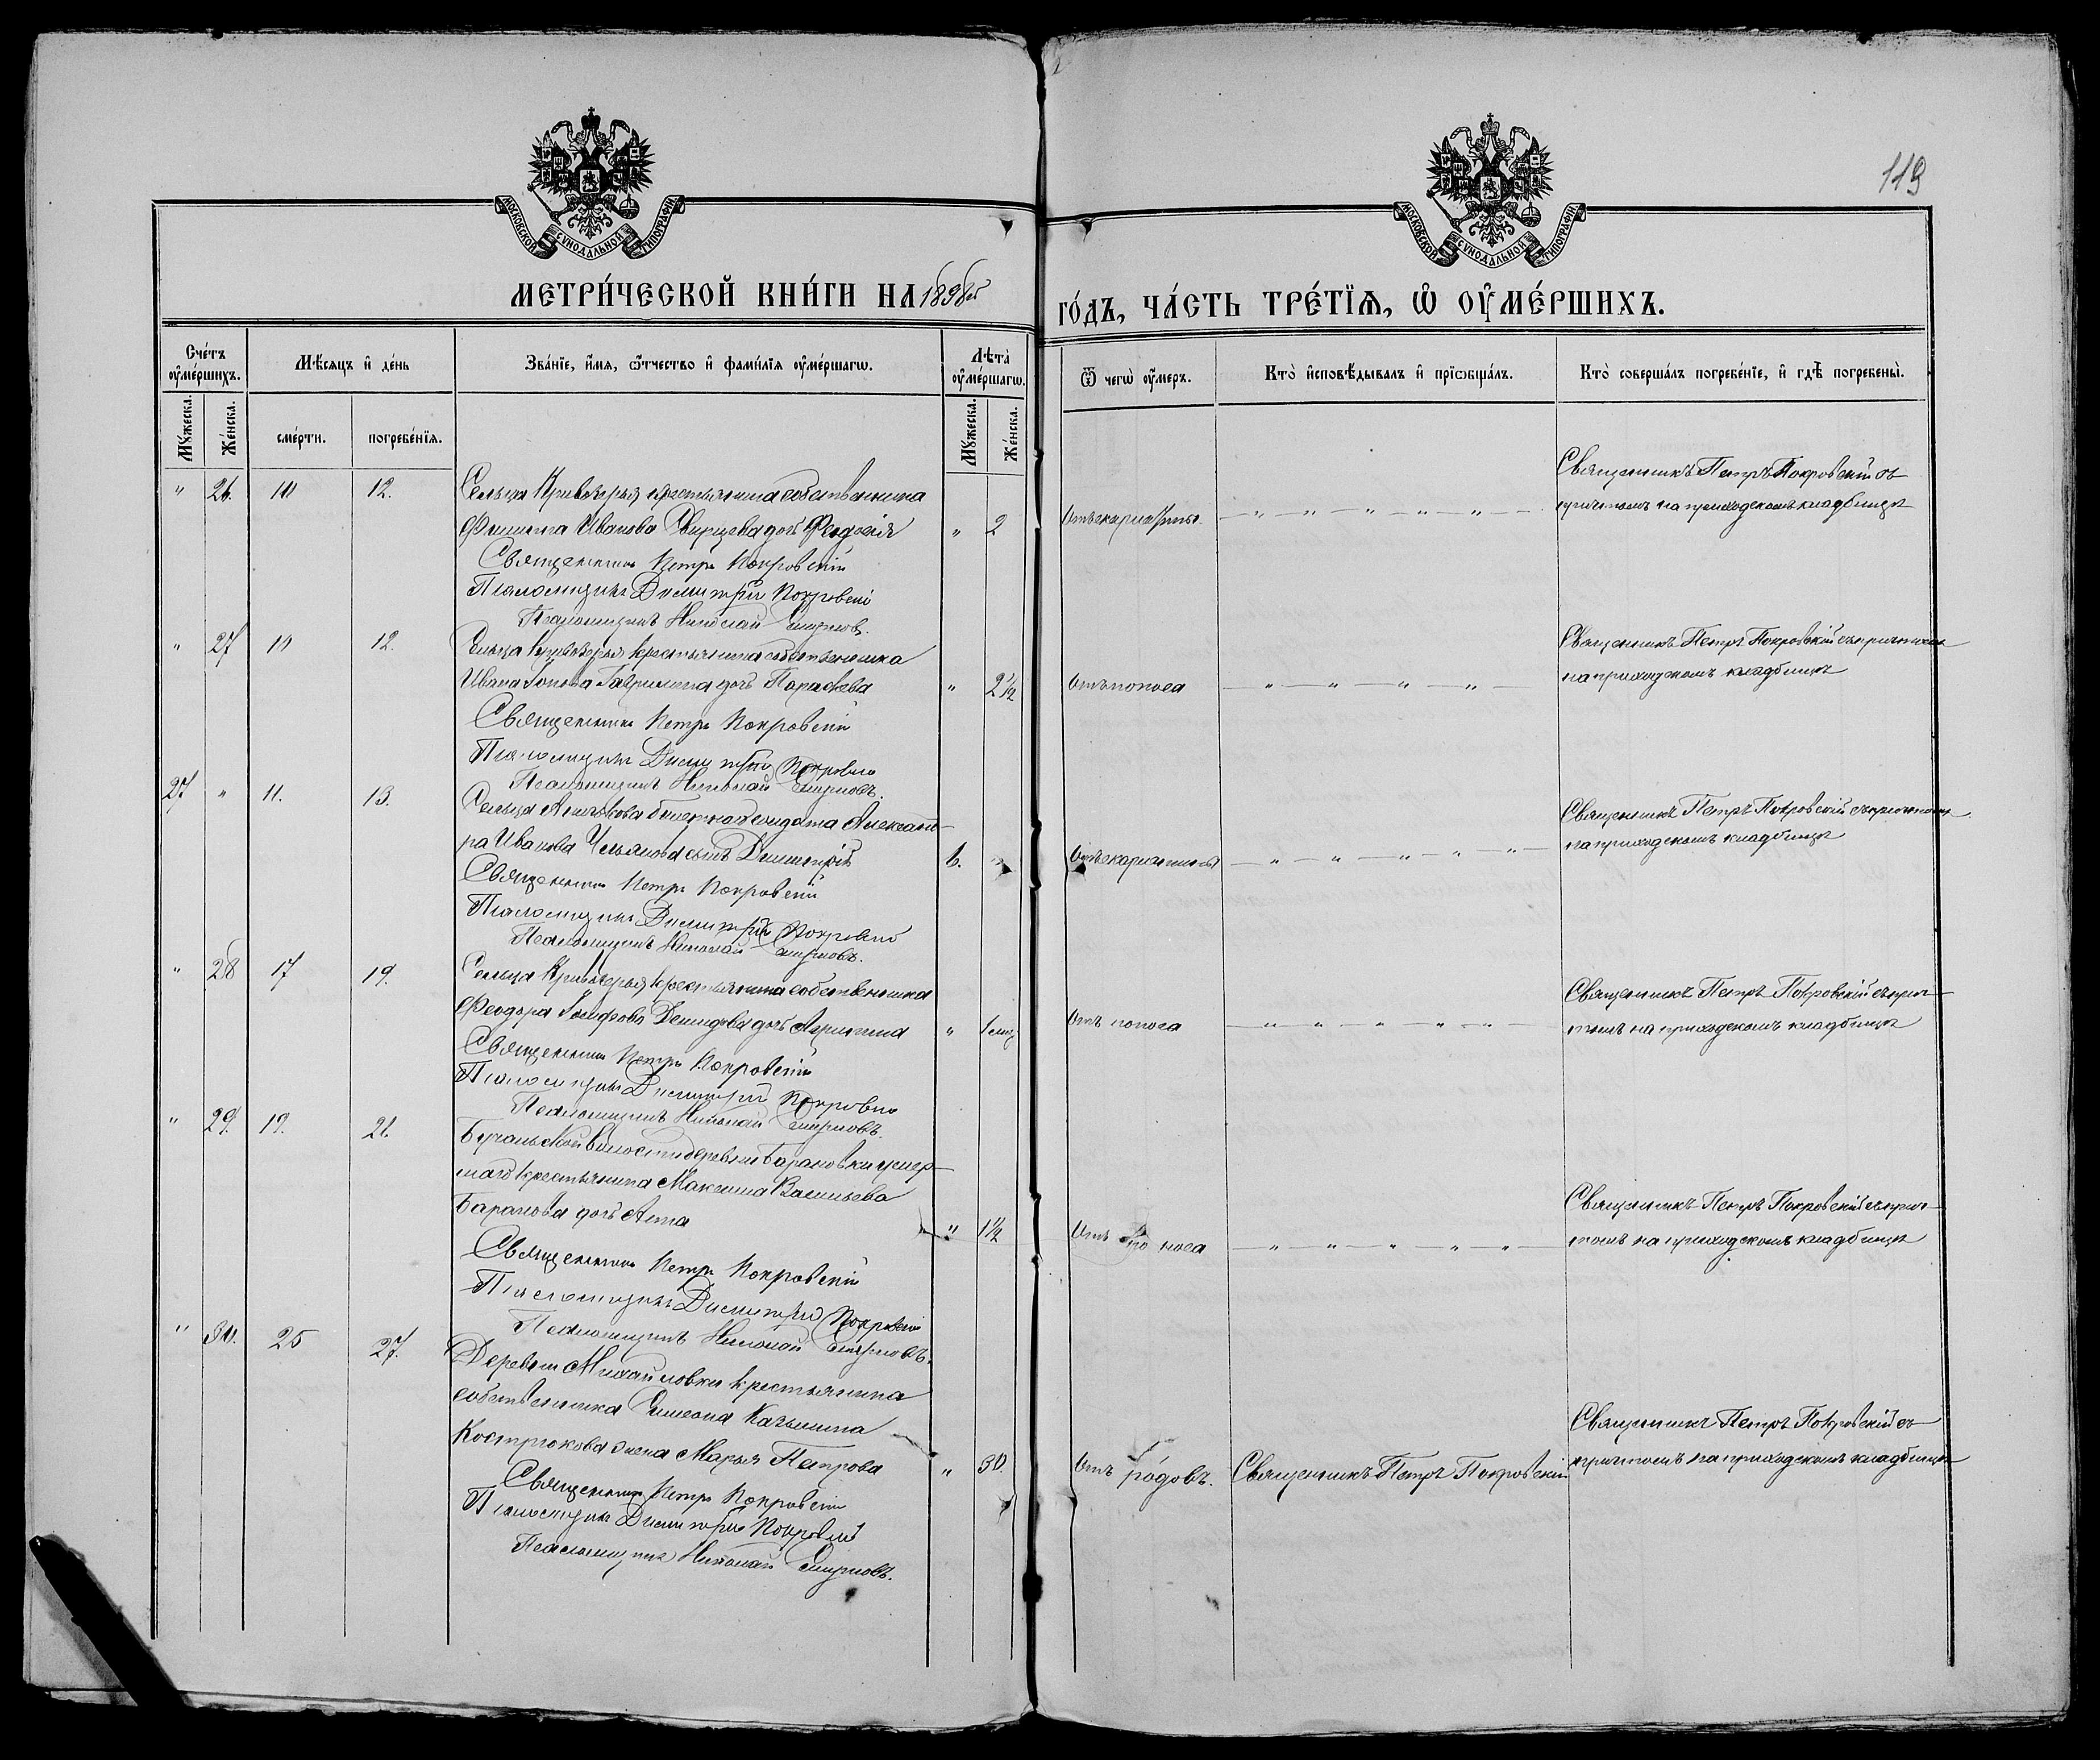 119
МОСКОВСКОЙ СУНОДАЛЬНОЙ ТИПОГРАФІИ
МОСКОВСКОЙ СУНОДАЛЬНОЙ ТИПОГРАФІИ
МЕТРИ́ЧЕСКОЙ КНИ́ГИ НА 1898й
ГО́ДЪ, ЧА́СТЬ ТРЕ́ТЇѦ, Ѡ ОУМЕ́РШИХЪ.
Сче́тъ оуме́ршихъ.
Мѣсяцъ и де́нь
Зва́нїе, и́мя, ѿтчество и фами́лїя оуме́ршагѡ.
Лѣта̀ оуме́ршагѡ.
Ѿ чегѡ̀ оу́меръ.
Кто̀ исповѣ́дывалъ и прїѡбща́лъ.
Кто̀ соверша́лъ погребе́нїе, и гдѣ̀ погребены̀.
Мꙋ́жеска.
Же́нска.
сме́рти.
погребе́нїя.
Мꙋ́жеска.
Же́нска.
" 26. 10 12. Сельца Кривозерья крестьянина собственника
Филиппа Иванова дочь Феодосія " 2
Священникъ Петръ Покровскій
Псаломщикъ Димитрій Покровскій
Псаломщикъ Николай Смирновъ.
Отъ скарлатины. — " — " — " — " — " —
Священникъ Петръ Покровскій съ
причтомъ на приходскомъ кладбищѣ
" 27 10 12. Сельца Кривозерья крестьянина собственника
Ивана Гаврилина дочь Параскева " 2½
Священникъ Петръ Покровскій
Псаломщикъ Димитрій Покровскій
Псаломщикъ Николай Смирновъ.
Отъ поноса — " — " — " — " —
Священникъ Петръ Покровскій съ причтомъ
на приходскомъ кладбищѣ
27 " 11. 13. Сельца солдата Александ-
ра Иванова сынъ Димитрій 6. "
Священникъ Петръ Покровскій
Псаломщикъ Димитрій Покровскій
Псаломщикъ Николай Смирновъ.
Отъ скарлатины — " — " — " — " — " —
Священникъ Петръ Покровскій съ причтомъ
на приходскомъ кладбищѣ
" 28 17 19. Сельца Кривозерья крестьянина собственника
Феодора Демидова дочь Агрипина " 1 мѣс
Священникъ Петръ Покровскій
Псаломщикъ Димитрій Покровскій
Псаломщикъ Николай Смирновъ.
Отъ поноса — " — " — " — " — " —
Священникъ Петръ Покровскій съ прич-
томъ на приходскомъ кладбищѣ
" 29. 19. 21. волости деревни Барановки умер-
шаго крестьянина Максима Васильева
Баранова дочь Анна " 1½
Священникъ Петръ Покровскій
Псаломщикъ Димитрій Покровскій
Псаломщикъ Николай Смирновъ.
Отъ поноса — " — " — " — " — " —
Священникъ Петръ Покровскій съ прич-
томъ на приходскомъ кладбищѣ
" 30. 25 27. Деревни Михайловки крестьянина
собственника Симеона Казьмина
Кострюкова жена Марья Петрова " 30.
Священникъ Петръ Покровскій
Псаломщикъ Димитрій Покровскій
Псаломщикъ Николай Смирновъ.
Отъ родовъ. Священникъ Петръ Покровскій
Священникъ Петръ Покровскій съ
причтомъ на приходскомъ кладбищѣ